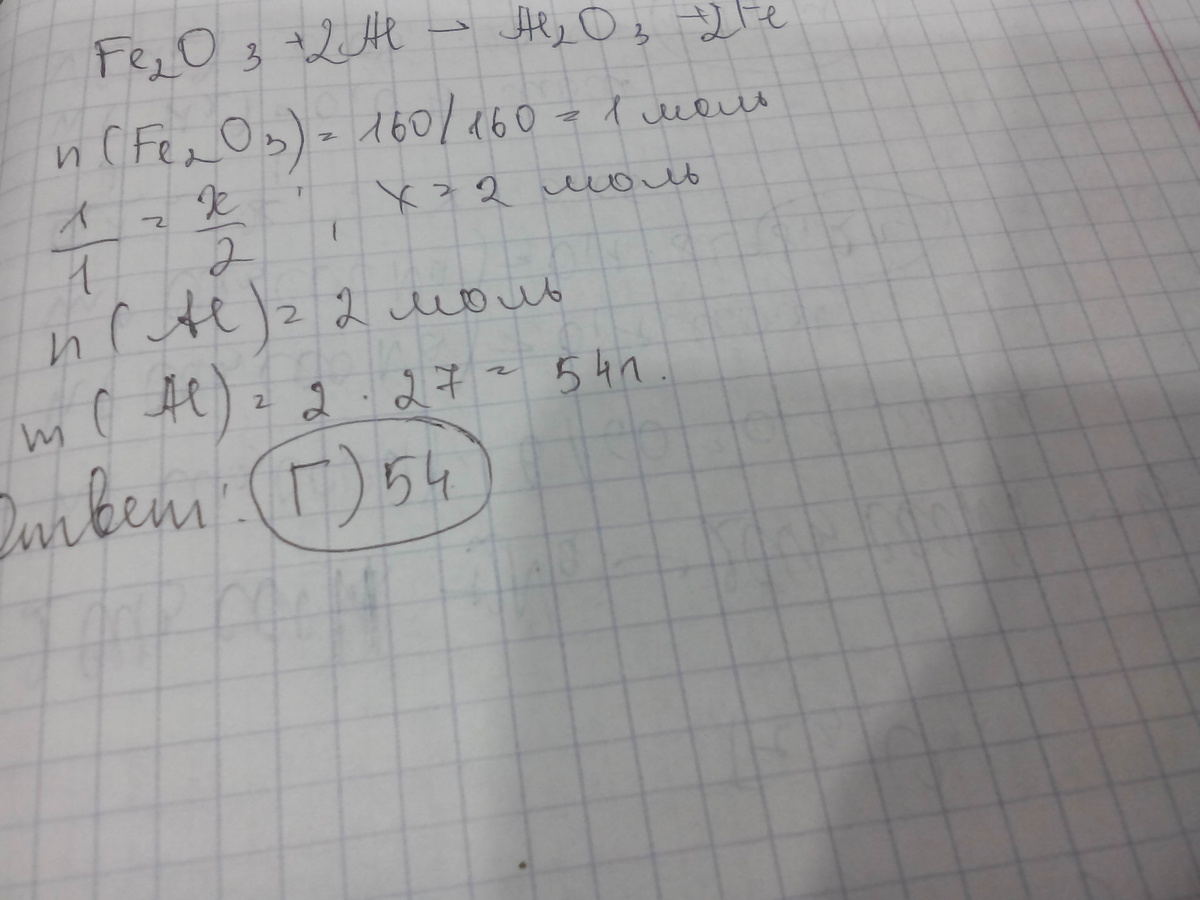 Fe₂O₃ + 2Al → Al₂O₃ + 2Fe
n(Fe₂O₃) = 160/160 = 1 моль
1/1 = x/2 ; x = 2 моль
n(Al) = 2 моль
m(Al) = 2 · 27 = 54г.
Ответ: Г) 54